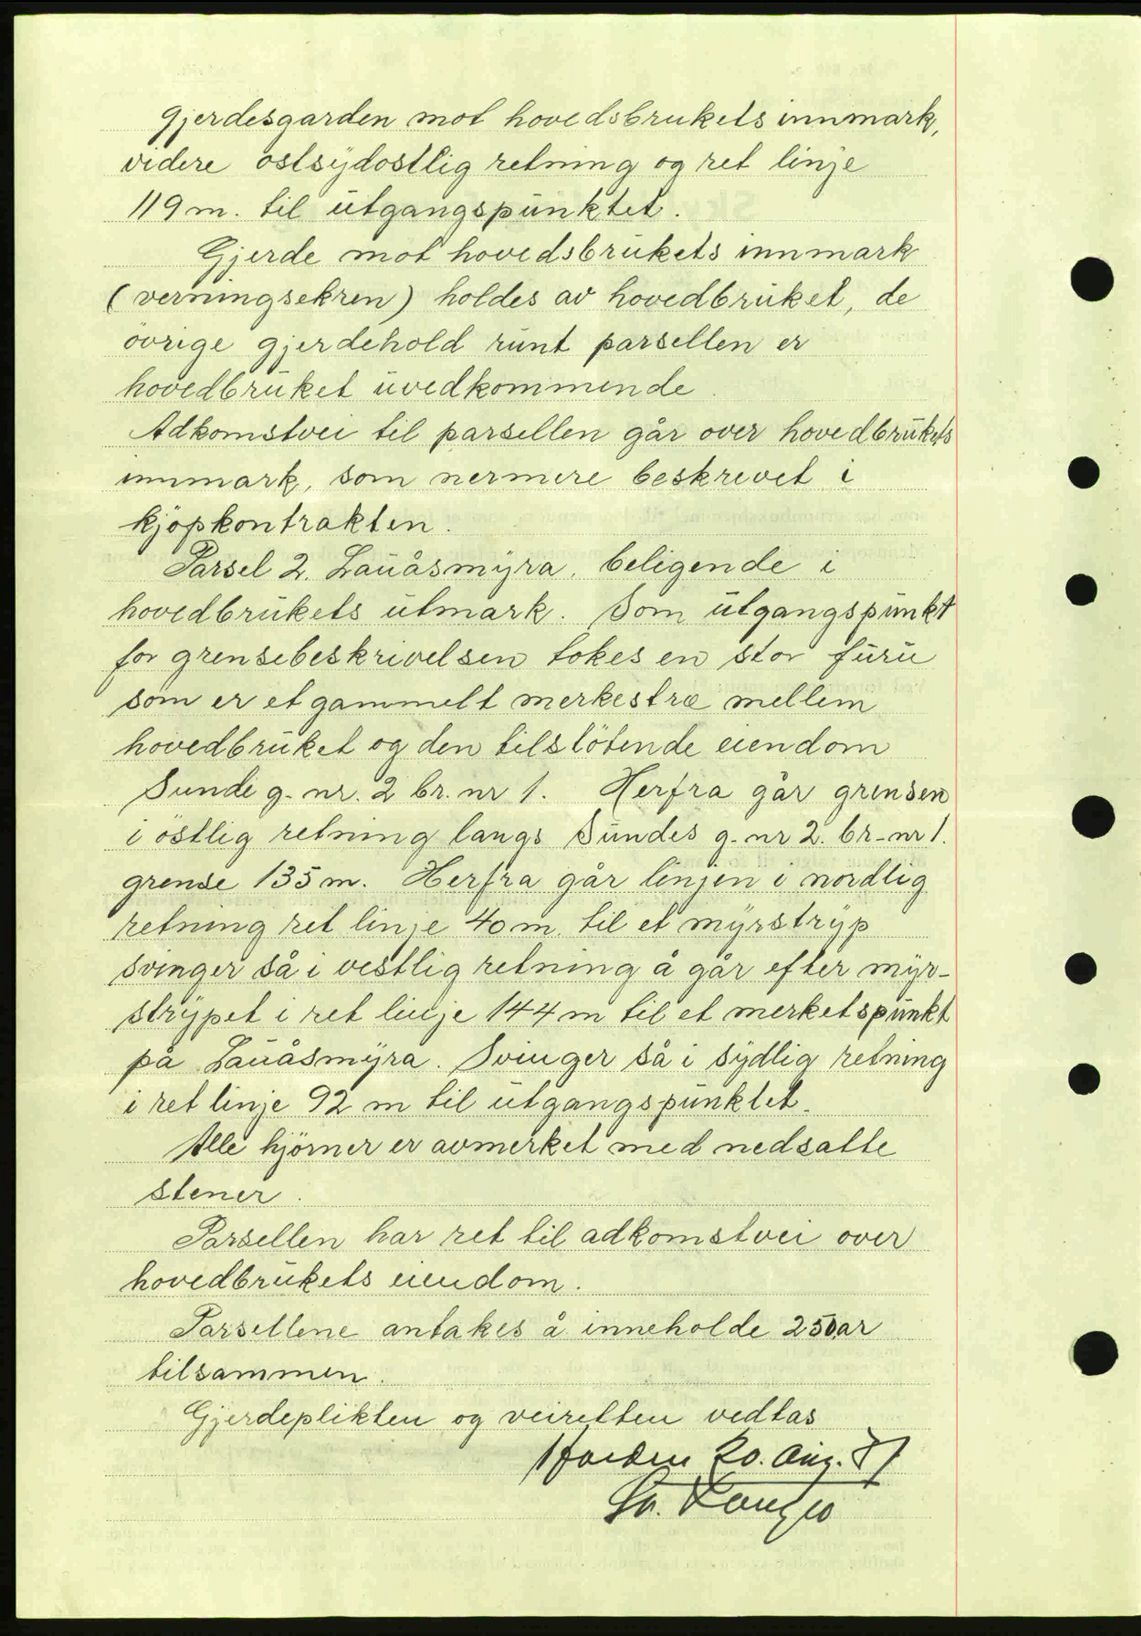 gjerdesgarden mot hovedsbrukets innmark,
videre östsydostlig retning og ret linje
119 m. til utgangspunktet.
Gjerde mot hovedsbrukets innmark
( ) holdes av hovedbruket, de
övrige gjerdehold runt parsellen er
hovedbruket uvedkommende.
Adkomstvei til parsellen går over hovedbrukets
innmark, som nermere beskrevet i
kjöpkontrakten.
Parsel 2. Lauåsmyra, beligende i
hovedbrukets utmark. Som utgangspunkt
for grensebeskrivelsen tokes en stor furu
som er et gammelt merkestræ mellem
hovedbruket og den tilstötende eiendom
Sunde g. nr. 2 br. nr 1. Herfra går grensen
i östlig retning langs Sundes g. nr 2. br-nr 1.
grense 135 m. Herfra går linjen i nordlig
retning ret linje 40 m. til et myrstryp
svinger så i vestlig retning å går efter myr-
strypet i ret linje 144 m til et merketspunkt
på Lauåsmyra. Svinger så i sydlig retning
i ret linje 92 m til utgangspunktet.
Alle hjörner er avmerket med nedsatte
stener.
Parsellen har ret til adkomstvei over
hovedbrukets eiendom.
Parsellene antakes å inneholde 250 ar
tilsammen.
Gjerdeplikten og veiretten vedtas
20. Aug.